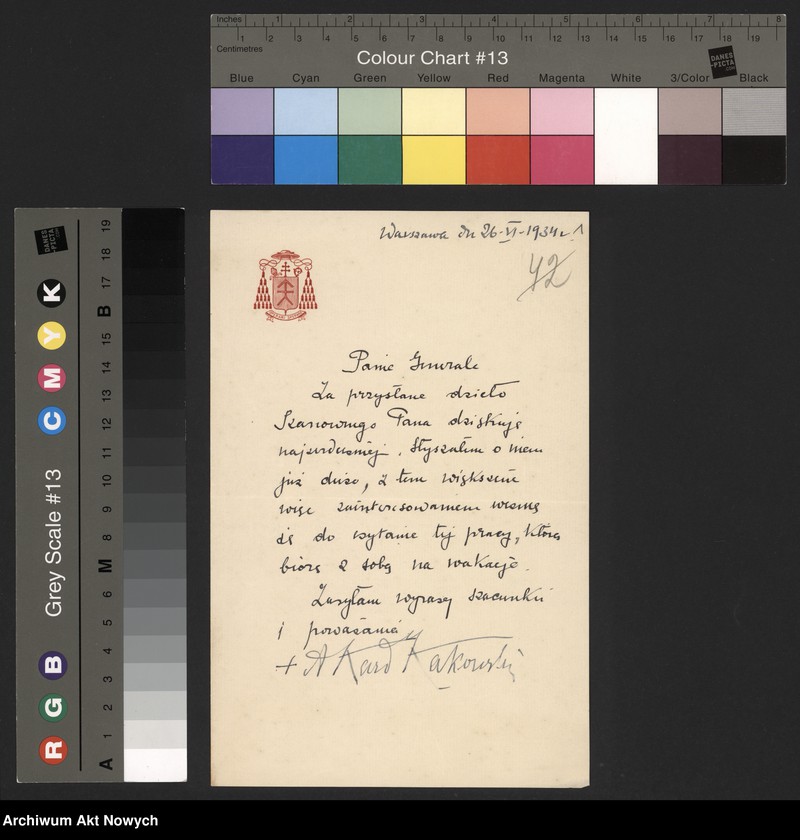 Inches 1 2 3 4 5 6 7 8
Centimetres 1 2 3 4 5 6 7 8 9 10 11 12 13 14 15 16 17 18 19
Colour Chart #13
DANES
-PICTA
.COM
Blue Cyan Green Yellow Red Magenta White 3/Color Black
Grey Scale #13
DANES
-PICTA
.COM
R G B C M Y K
A 1 2 3 4 5 6 M 8 9 10 11 12 13 14 15 B 17 18 19
Warszawa dn 26-VI-1934 r.
42
Panie Generale
Za przysłane dzieło
Szanownego Pana dziękuję
najserdeczniej. Słyszałem o niem
już dużo, z tem większem
więc zainteresowaniem wezmę
się do czytania tej pracy, którą
biorę z sobą na wakacje.
Zasyłam wyrazy szacunku
i poważania
+ A Kard Kakowski
Archiwum Akt Nowych